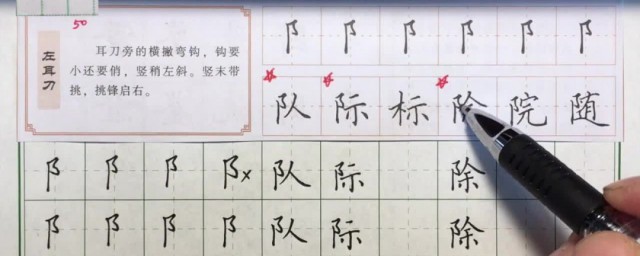 50
左耳刀
耳刀旁的横撇弯钩，钩要
小还要俏，竖稍左斜。竖末带
挑，挑锋启右。
阝 阝 阝 阝 阝 阝
队 际 标 除 院 随
阝 阝 阝 阝× 队 际 除
阝 阝 阝 阝 队 际 除